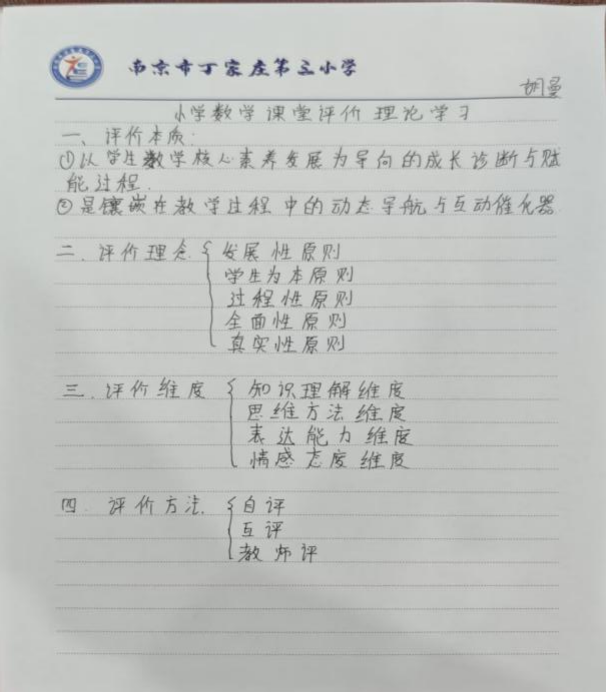 南京市丁家庄第三小学
胡曼
小学数学课堂评价理论学习
一、评价本质:
①以学生数学核心素养发展为导向的成长诊断与赋
能过程.
②是镶嵌在教学过程中的动态导航与互动催化器
二、评价理念{发展性原则
学生为本原则
过程性原则
全面性原则
真实性原则
三、评价维度{知识理解维度
思维方法维度
表达能力维度
情感态度维度
四.评价方法.{自评
互评
教师评